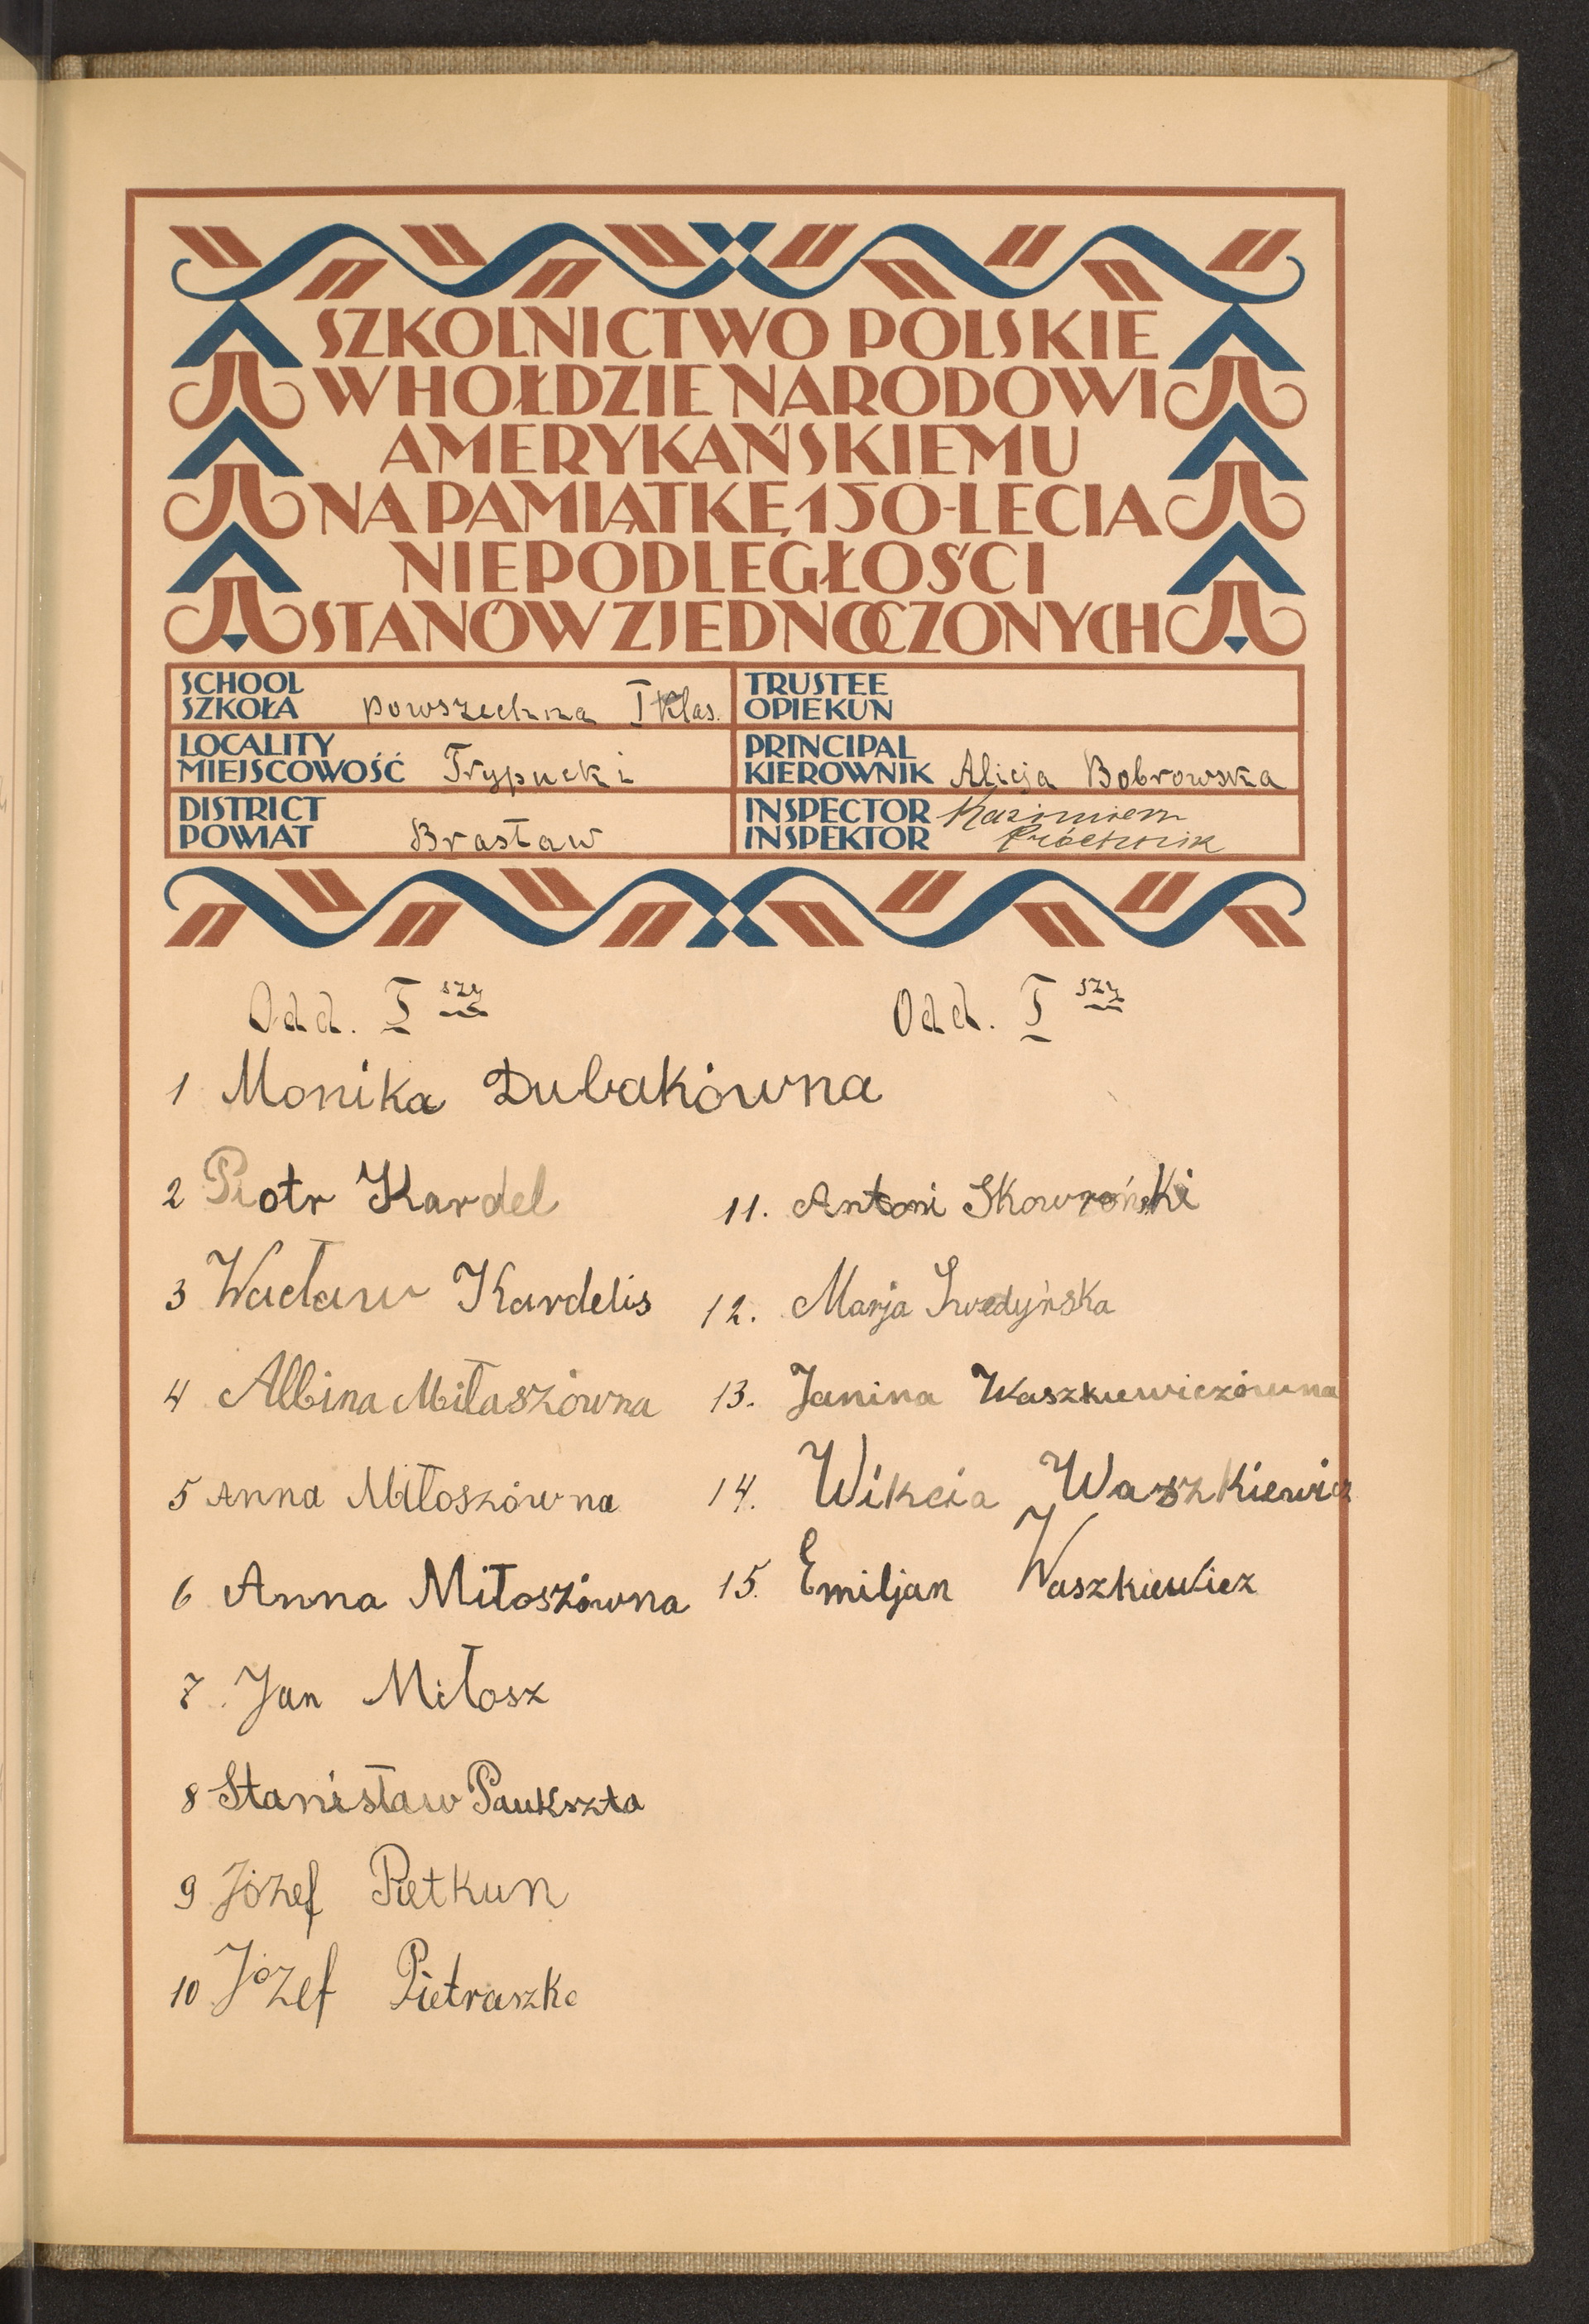 SZKOLNICTWO POLSKIE
W HOŁDZIE NARODOWI
AMERYKAŃSKIEMU
NA PAMIĄTKĘ 150-LECIA
NIEPODLEGŁOŚCI
STANÓW ZJEDNOCZONYCH
SCHOOL
SZKOŁA powszechna I klas.
TRUSTEE
OPIEKUN
LOCALITY
MIEJSCOWOŚĆ Trypucki
PRINCIPAL
KIEROWNIK Alicja Bobrowska
DISTRICT
POWIAT Brasław
INSPECTOR Kazimierz
INSPEKTOR Próchnik
Odd. I szy
1 Monika Dubakówna
2 Piotr Kardel
3 Wacław Kardelis
4 Albina Miłaszówna
5 Anna Miłoszówna
6 Anna Miłoszówna
7. Jan Miłosz
8 Stanisław Paukszta
9 Józef Pietkun
10 Józef Pietraszko
Odd. I szy
11. Antoni Skowroński
12. Marja Swedyńska
13. Janina Waszkiewiczówna
14. Wikcia Waszkiewicz
15. Emiljan Waszkiewicz